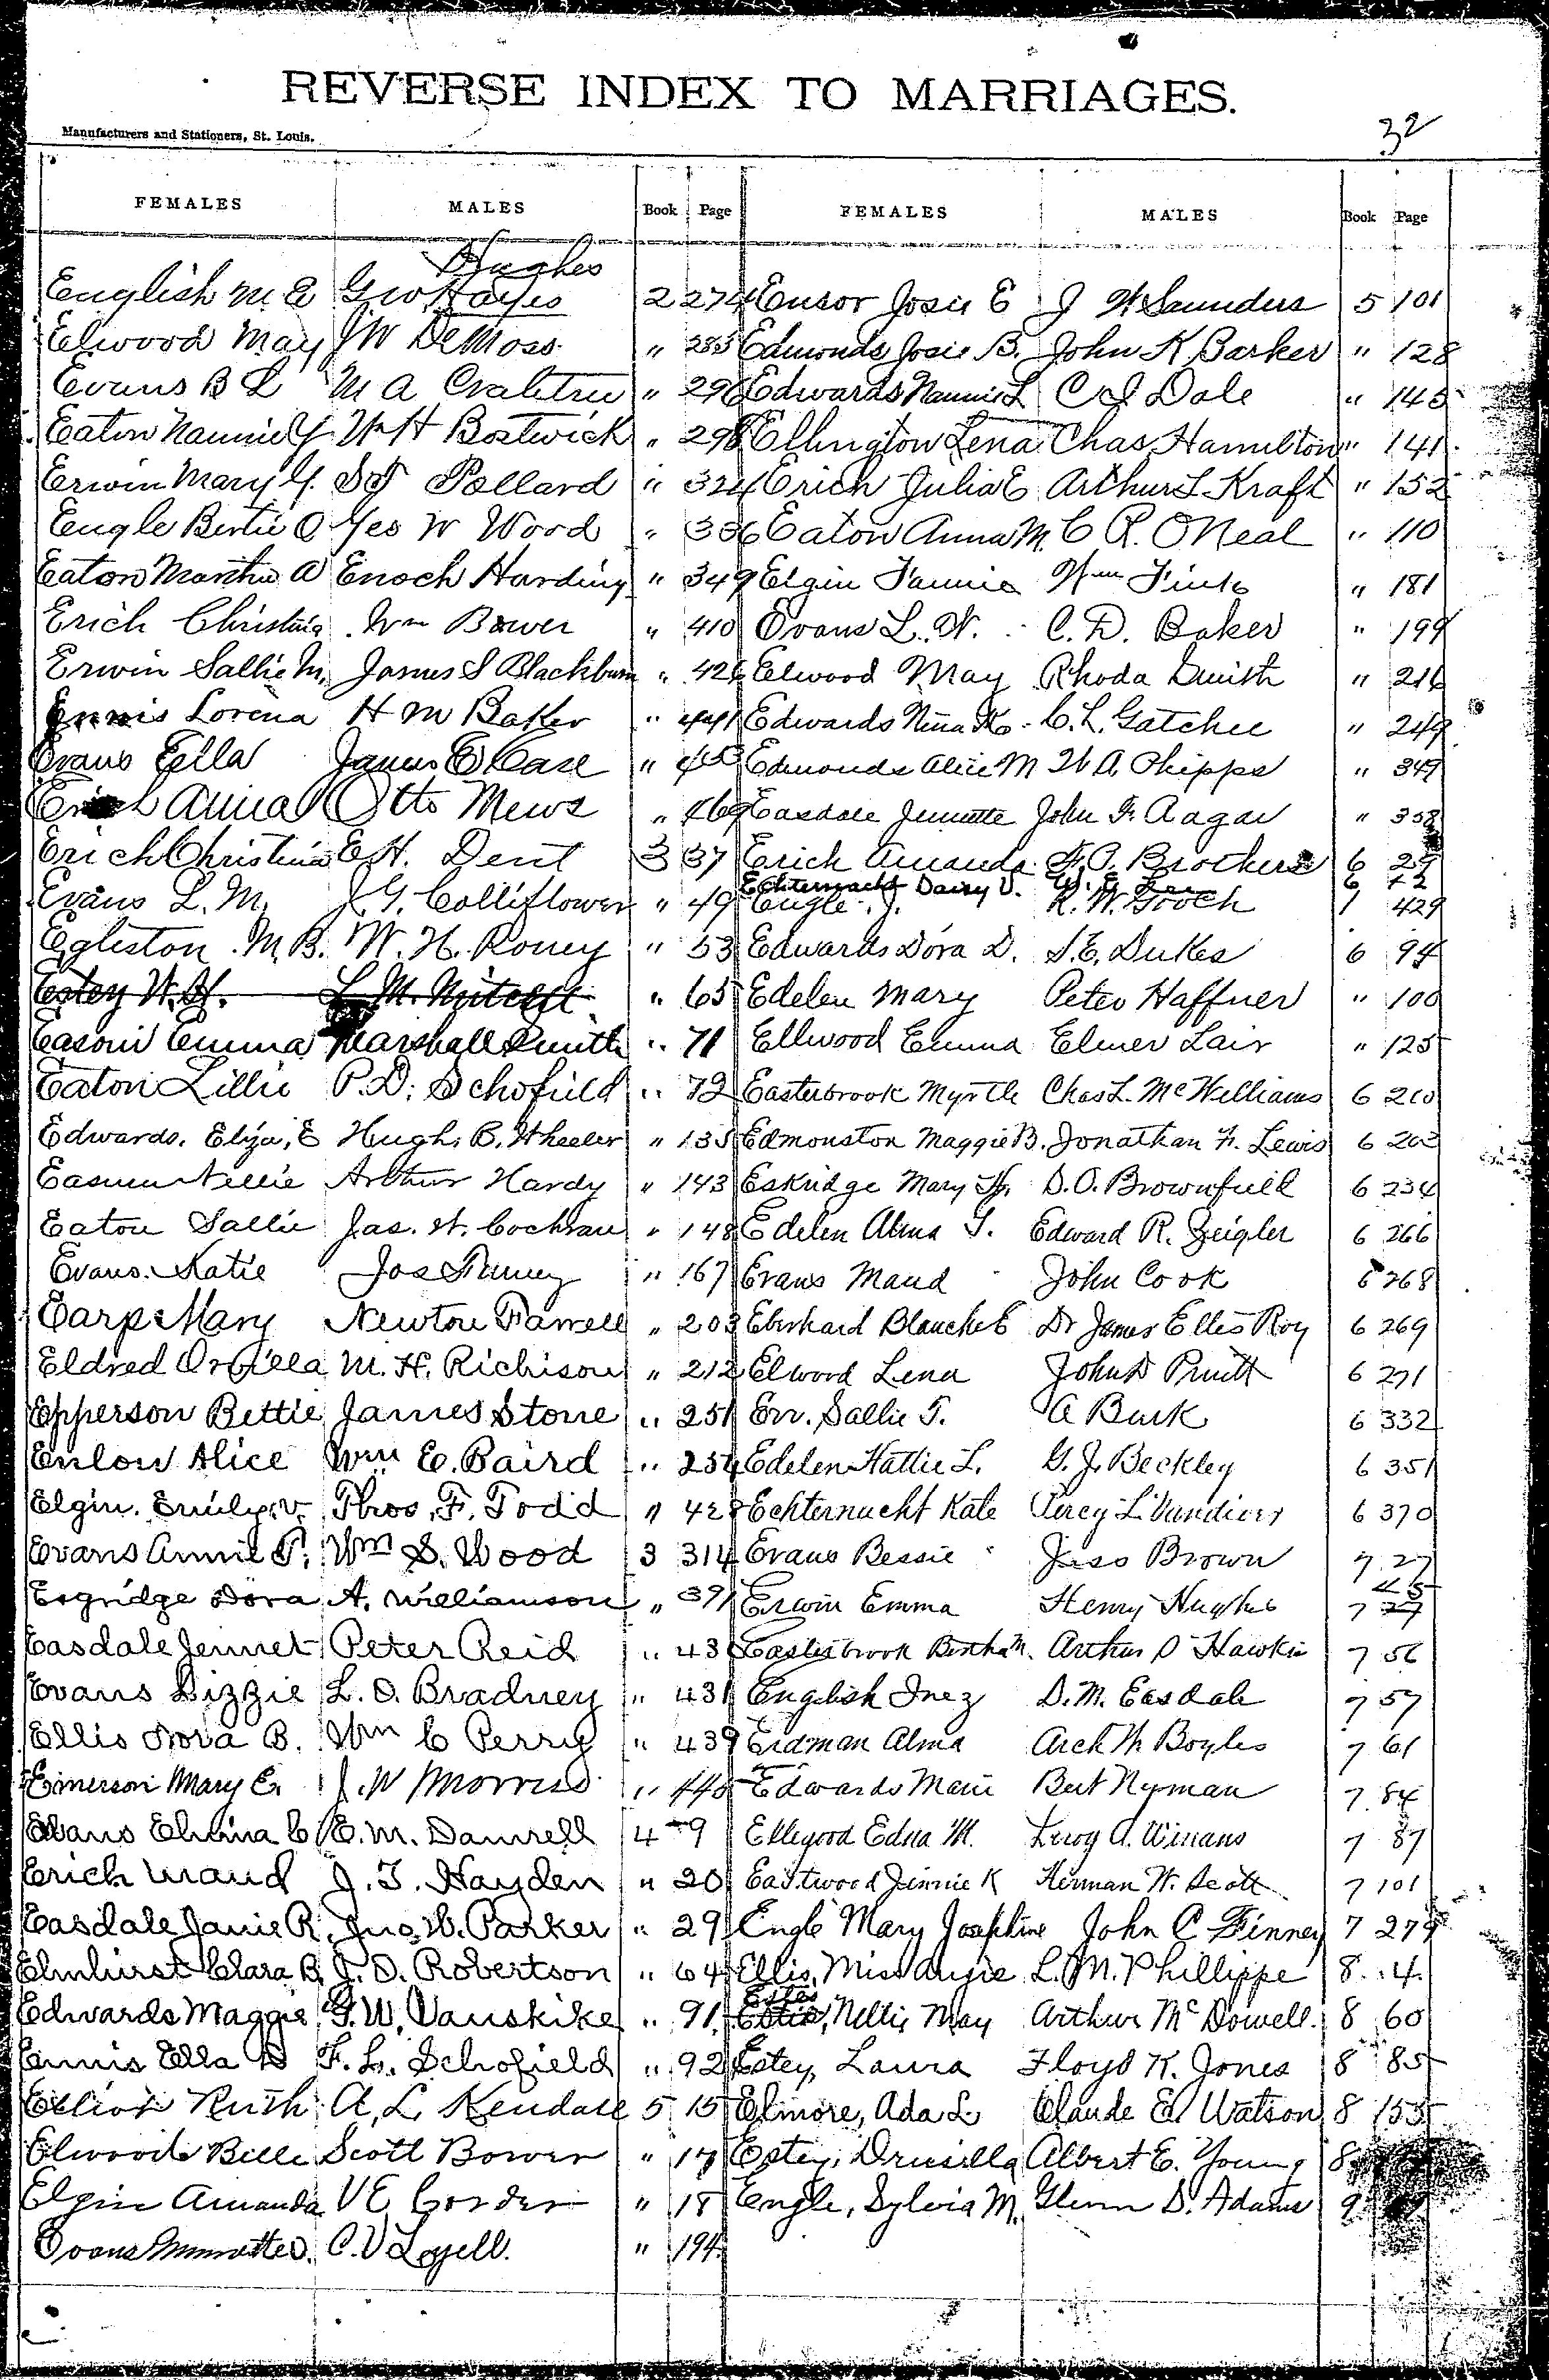 REVERSE INDEX TO MARRIAGES.
Manufacturers and Stationers, St. Louis.
32
FEMALES MALES Book Page FEMALES MALES Book Page
Hughes
English M. E G W Hayes 2 274
Elwood May J W DeMoss " 285
Evans B L M A Crabtree " 296
Eaton Nannie Y Wm H Bostwick " 298
Erwin Mary Y. S T Pollard " 324
Engle Bertie O Geo W Wood " 336
Eaton Martha A Enoch Harding " 349
Erich Christina Wm Bower " 410
Erwin Sallie M. James S Blackburn " 426
Ennis Lorena H M Baker " 441
Evans Ella James E Case "
Erich Anna Otto Mews " 469
Erich Christina E. H. Dent 3 37
Evans L. M. J. G. Colliflower " 49
Egliston M. B. W. H. Roney " 53
Estey W. H. L. M. Mitchell " 65
Easom Emma Marshall Smith " 71
Eaton Lillie P. D. Schofield " 72
Edwards, Eliza, E Hugh B. Wheeler " 135
Easum Nellie Arthur Hardy " 143
Eaton Sallie Jas. H. Cochran " 148
Evans Katie Jos " 167
Earp Mary Newton Farrell " 203
Eldred M. H. Richison " 212
Epperson Bettie James Stone " 251
Enlow Alice Wm E. Baird " 254
Elgin. Emily. V. Thos. F. Todd " 428
Evans Annie P. Wm S. Wood 3 314
Esgridge Dora A. Williamson " 391
Easdale Jennet Peter Reid " 430
Evans Lizzie L. O. Bradney " 431
Ellis Nova B. Wm C Perry " 439
Emerson Mary E. J. W Morris " 440
Evans Elmina C E. M. Damrell 4 9
Erich Maud J. T. Hayden " 20
Easdale Janie R. Jno. W. Parker " 29
Elmhurst Clara B. J. D. Robertson " 64
Edwards Maggie G. W. Vanskike " 91
Ennis Ella D F. L. Schofield " 92
Elliott Ruth A. L. Kendall 5 15
Elwood Belle Scott Bower " 17
Elgin Amanda V E Corder " 18
Evans C. V Loyell. " 194
Ensor Josie E J W Saunders 5 101
Edmonds Josie B. John K Barker " 128
Edwards Nannie L C J Dale " 145
Ellington Lena Chas Hamilton " 141
Erich Julia E Arthur L Kraft " 152
Eaton Anna M. C R. ONeal " 110
Elgin Fannie Wm Fink " 181
Evans L. W. C. D. Baker " 199
Elwood May Rhoda Smith " 216
Edwards Nina K. C. L. Gatchee " 249
Edmonds Alice M W A Phipps " 349
Easdale Jennette John F. Aagar " 358
Erich Amanda F. O. Brothers 6 29
Echternacht Daisy V. 6 72
Engle J. R. W. Gooch 1 429
Edwards Dora D. S. E. Dukes 6 94
Edelen Mary Peter Haffner " 100
Ellwood Emma Elmer Lair " 125
Easterbrook Myrtle Chas L. McWilliams 6 210
Edmonston Maggie B. Jonathan F. Lewis 6 203
Eskridge Mary D. O. Brownfield 6 234
Edelen Alma T. Edward R. Zeigler 6 266
Evans Maud John Cook 6 268
Eberhard Blanche E Dr James Ellis Roy 6 269
Elwood Lena John D Pruitt 6 271
Err. Sallie T. A Burk 6 332
Edelen Hattie L. G. J. Beckley 6 351
Echternacht Kate Percy L Vandiver 6 370
Evans Bessie Jess Brown 7 27
45
Erwin Emma Henry Hughes 7 27
Easterbrook Bertha M. Arthur D Hawkin 7 56
English Inez D. M. Easdale 7 57
Erdman Alma Arch M Boyles 7 61
Edwards Marie Bert Nyman 7 84
Ellegood Edna M. Leroy A. Winans 7 87
Eastwood Jinnie K Herman W. Scott 7 101
Engle Mary Josephine John C Finney 7 279
Ellis, Miss Angie L. M. Phillippe 8 4
Estes
Nellie May Arthur McDowell. 8 60
Estey, Laura Floyd K. Jones 8 85
Elmore, Ada L. Claude E. Watson 8 155
Estey, Drusilla Albert E. Young 8
Engle, Sylvia M. Glenn D. Adams 9